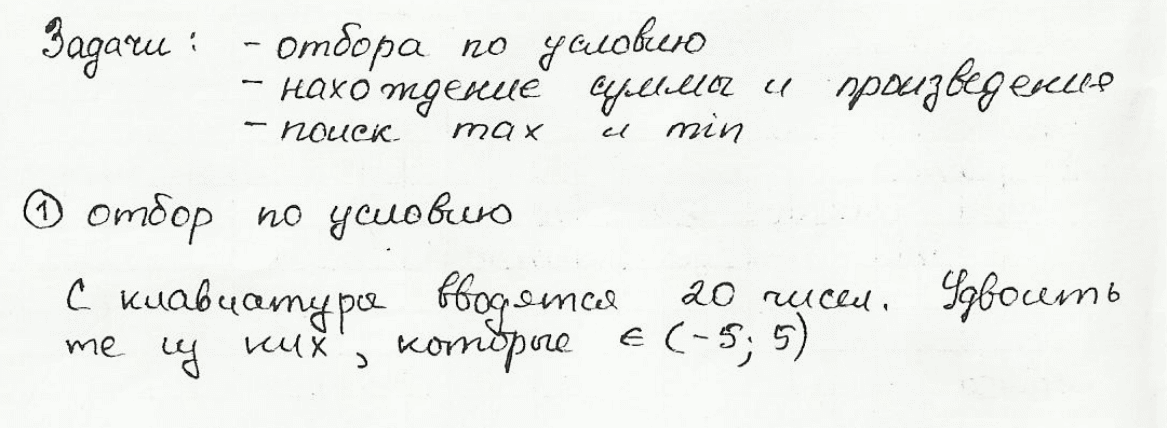 Задачи: - отбора по условию
- нахождение суммы и произведения
- поиск max и min
① отбор по условию
С клавиатуры вводятся 20 чисел. Удвоить
те из них, которые ∈ (-5; 5)